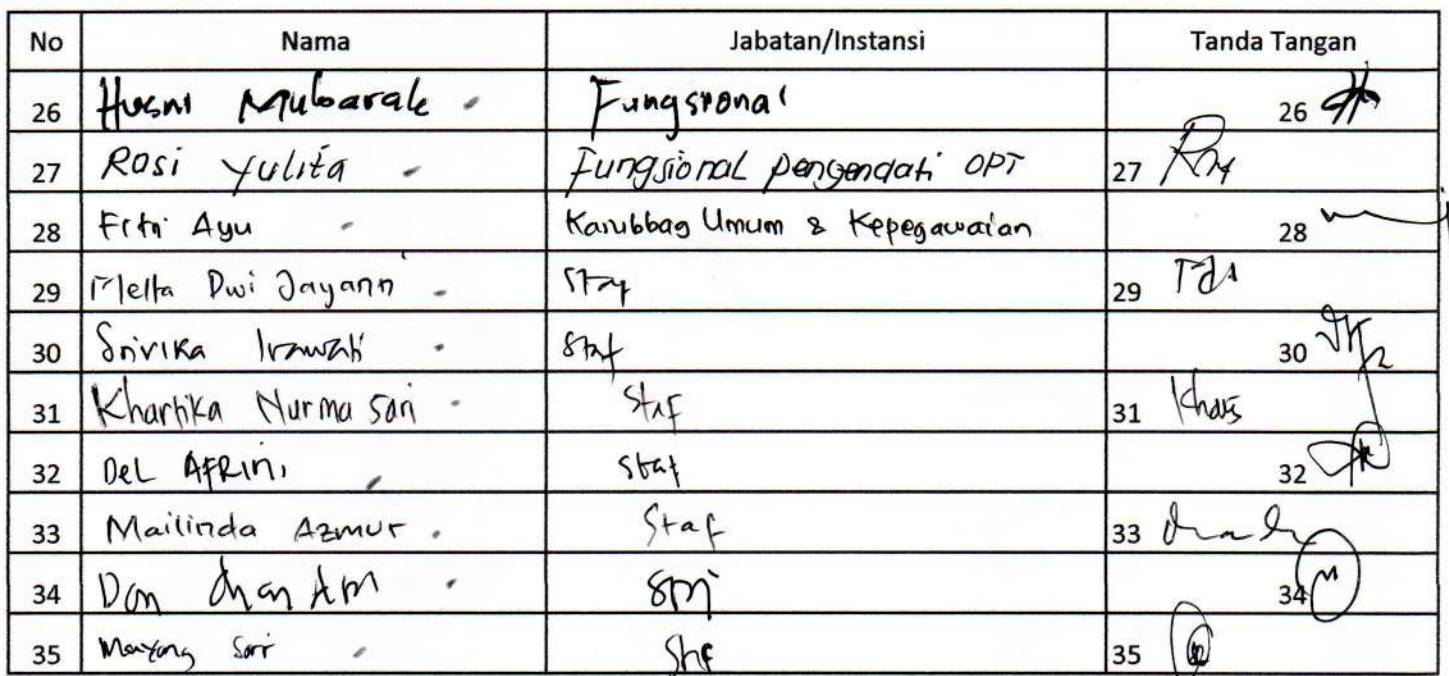 No Nama Jabatan/Instansi Tanda Tangan
26 Husni Mubarak Fungsional 26
27 Rosi Yulita Fungsional pengendali OPT 27
28 Fitri Ayu Kasubbag Umum & Kepegawaian 28
29 Melta Dwi Jayanti Staf 29
30 Srivika Irawati Staf 30
31 Khartika Nurma Sari Staf 31
32 Del AFRINI Staf 32
33 Mailinda Azmur Staf 33
34 34
35 Sari Staf 35